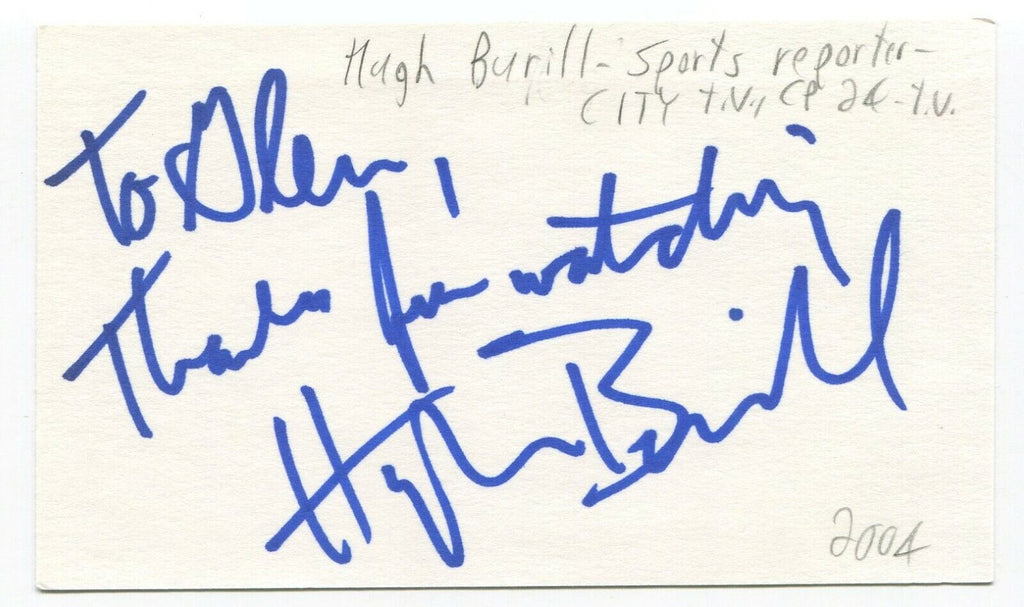 Hugh Burill - Sports reporter -
CITY T.V., CP 24 - T.V.
To Glen,
Thanks for watching
Hugh Burrill
2004